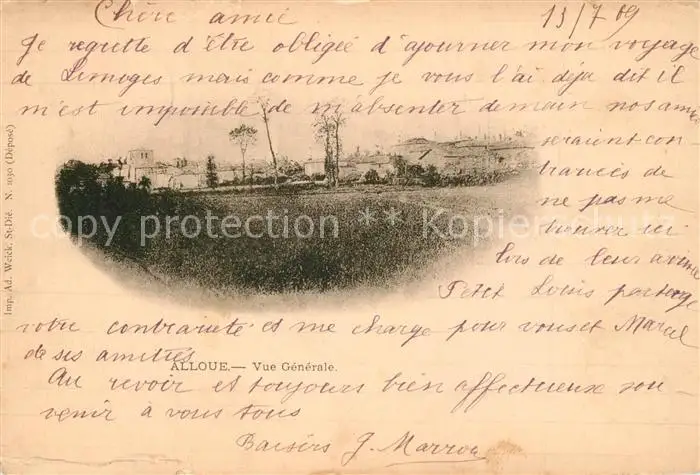 Chère amie 13/7 09
Je regrette d'être obligée d'ajourner mon voyage
de Limoges mais comme je vous l'ai déja dit il
m'est impossible de m'absenter demain nos amis
seraient con-
trariés de
ne pas me
trouver ici
lors de leur arrivée
Petit Louis partage
votre contrariété et me charge pour vous et Marcel
de ses amitiés
ALLOUE.— Vue Générale.
Au revoir et toujours bien affectueux sou-
venir à vous tous
Baisers J. Marrou
Imp. Ad. Weick, St-Dié. N. 1030 (Déposé)
copy protection ** copyright